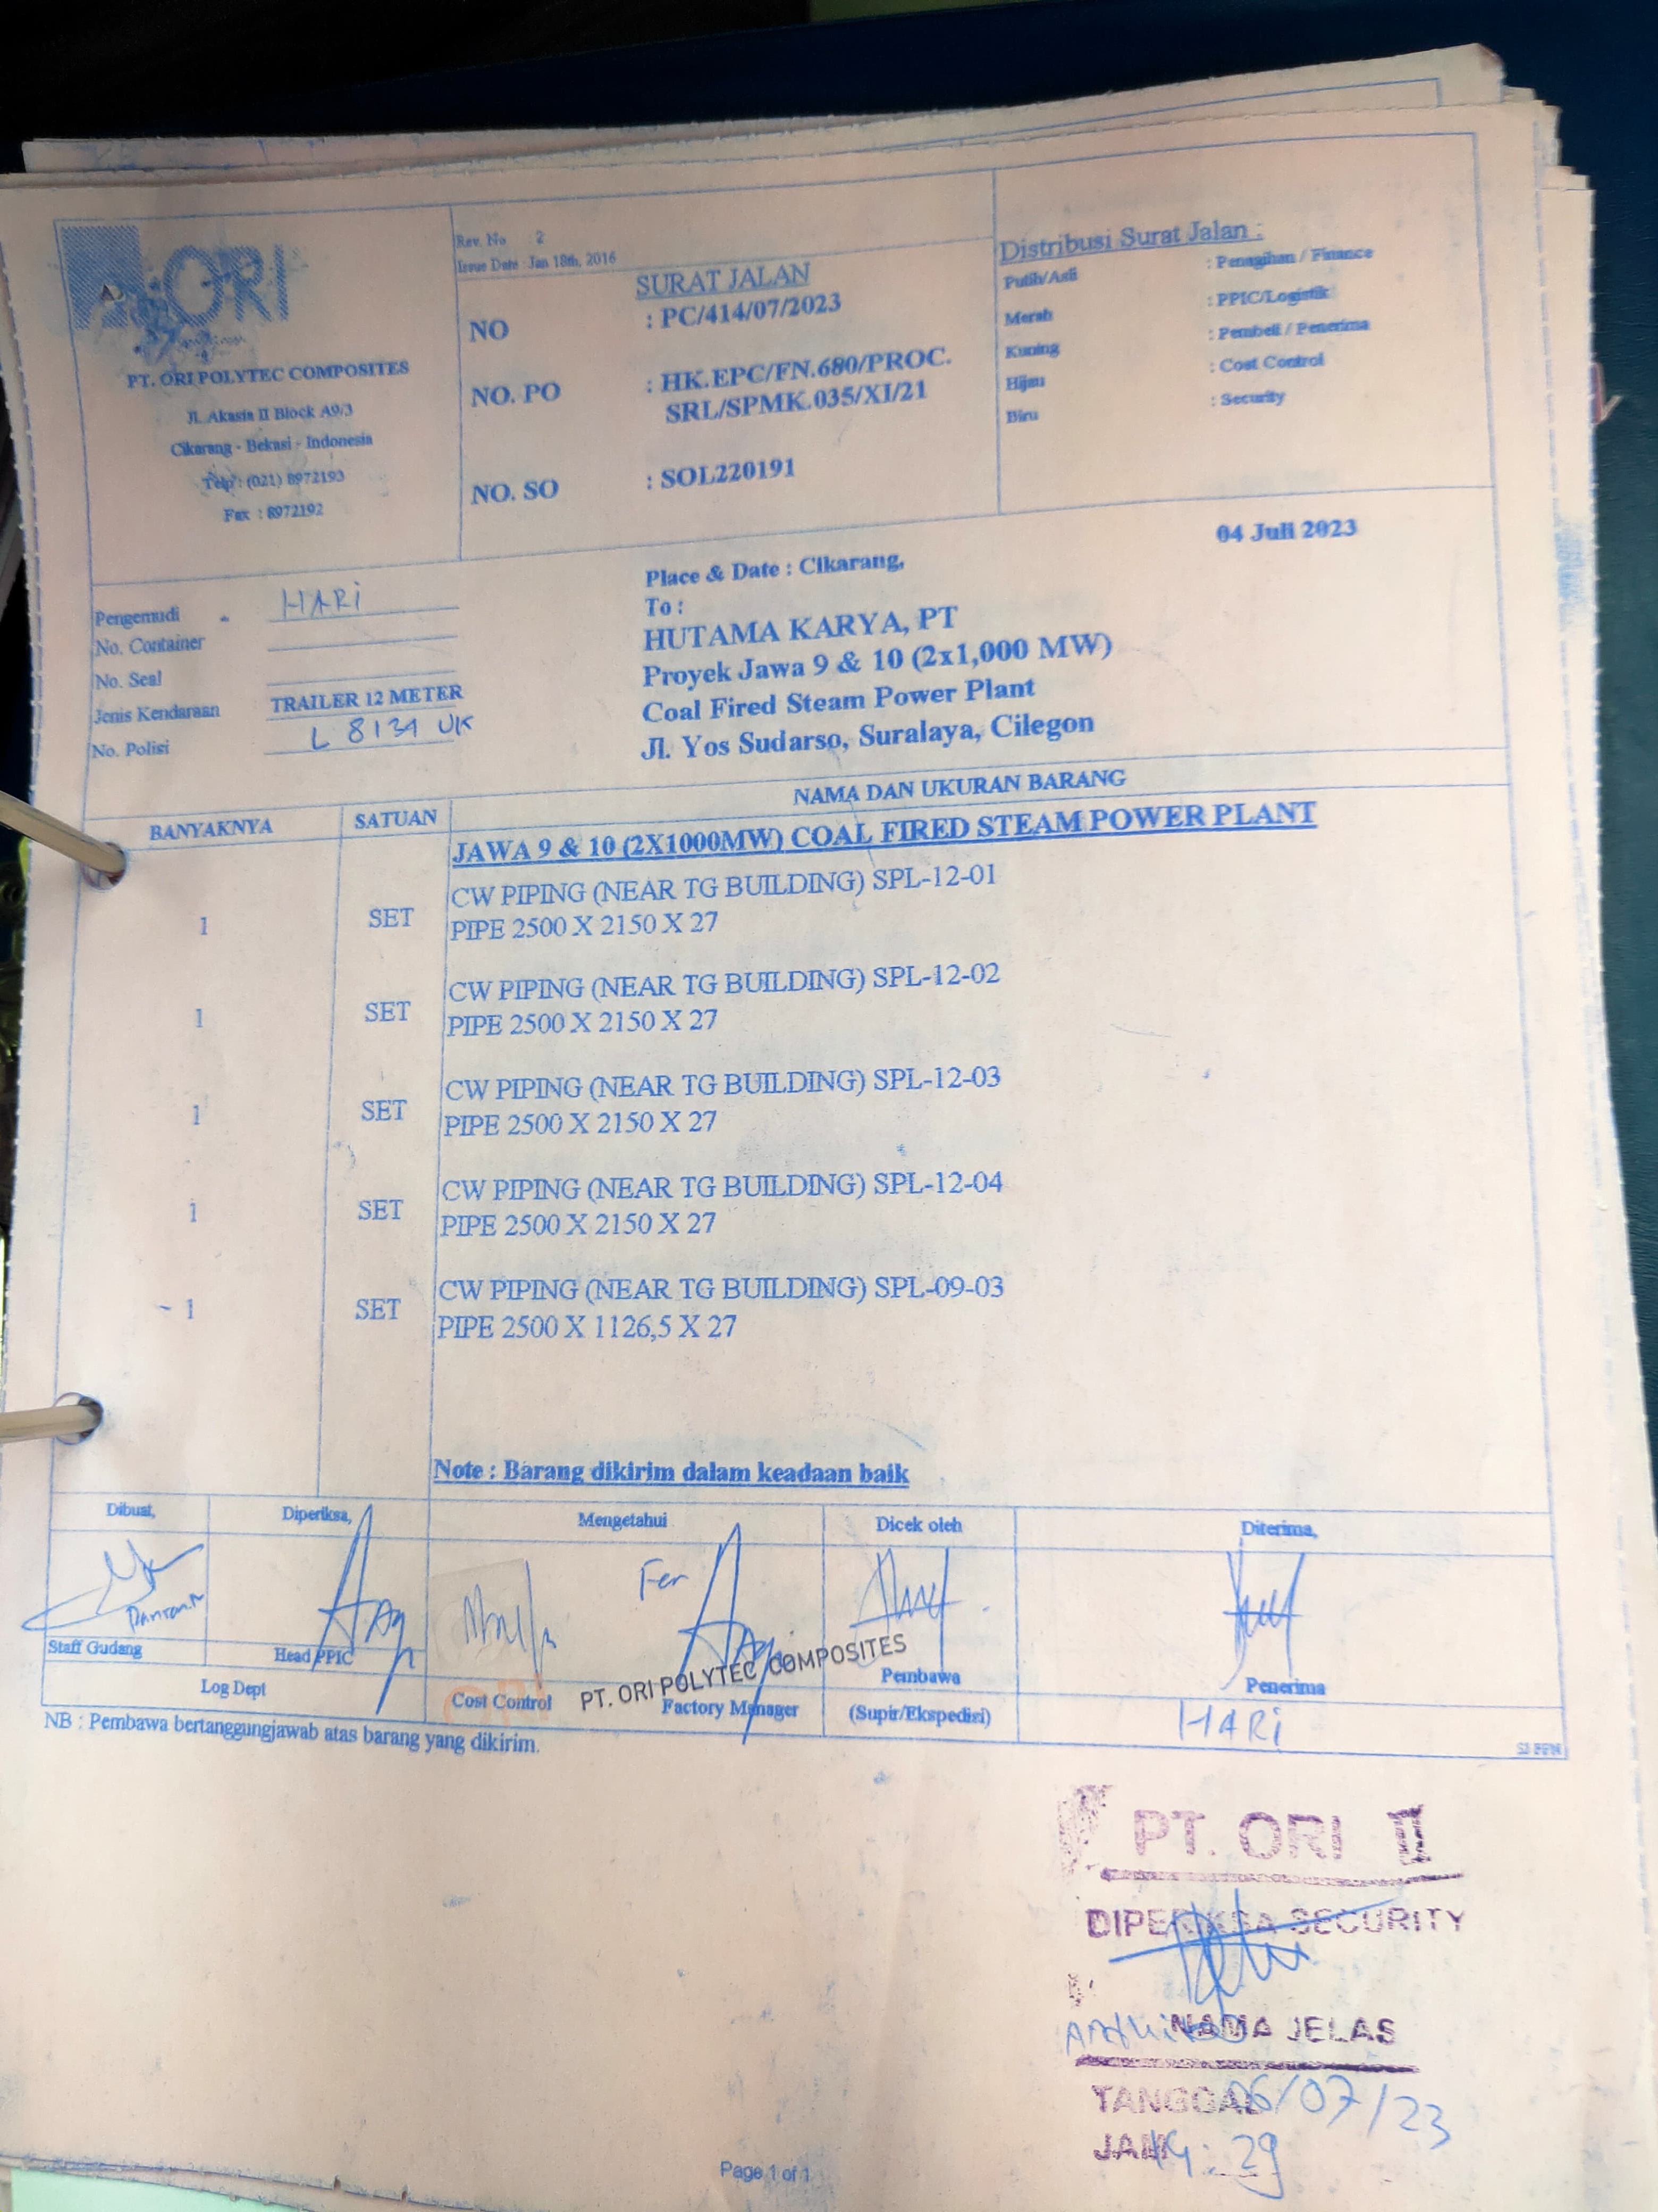 ORI
PT. ORI POLYTEC COMPOSITES
Jl. Akasia II Block A9/3
Cikarang - Bekasi - Indonesia
Telp : (021) 8972193
Fax : 8972192
Rev. No 2
Issue Date : Jan 18th, 2016
SURAT JALAN
NO : PC/414/07/2023
NO. PO : HK.EPC/FN.680/PROC.
SRL/SPMK.035/XI/21
NO. SO : SOL220191
Distribusi Surat Jalan :
Putih/Asli : Penagihan / Finance
Merah : PPIC/Logistik
Kuning : Pembeli / Penerima
Hijau : Cost Control
Biru : Security
Pengemudi HARI
No. Container
No. Seal
Jenis Kendaraan TRAILER 12 METER
No. Polisi L 8131 UK
Place & Date : Cikarang, 04 Juli 2023
To :
HUTAMA KARYA, PT
Proyek Jawa 9 & 10 (2x1,000 MW)
Coal Fired Steam Power Plant
Jl. Yos Sudarso, Suralaya, Cilegon
BANYAKNYA SATUAN NAMA DAN UKURAN BARANG
JAWA 9 & 10 (2X1000MW) COAL FIRED STEAM POWER PLANT
1 SET CW PIPING (NEAR TG BUILDING) SPL-12-01
PIPE 2500 X 2150 X 27
1 SET CW PIPING (NEAR TG BUILDING) SPL-12-02
PIPE 2500 X 2150 X 27
1 SET CW PIPING (NEAR TG BUILDING) SPL-12-03
PIPE 2500 X 2150 X 27
1 SET CW PIPING (NEAR TG BUILDING) SPL-12-04
PIPE 2500 X 2150 X 27
1 SET CW PIPING (NEAR TG BUILDING) SPL-09-03
PIPE 2500 X 1126,5 X 27
Note : Barang dikirim dalam keadaan baik
Dibuat, Diperiksa, Mengetahui Dicek oleh Diterima,
Fer
PT. ORI POLYTEC COMPOSITES
Staff Gudang Head PPIC Pembawa Penerima
Log Dept Cost Control Factory Manager (Supir/Ekspedisi) HARI
NB : Pembawa bertanggungjawab atas barang yang dikirim.
PT. ORI II
DIPERIKSA SECURITY
NAMA JELAS
TANGGAL 06/07/23
JAM 14:29
Page 1 of 1